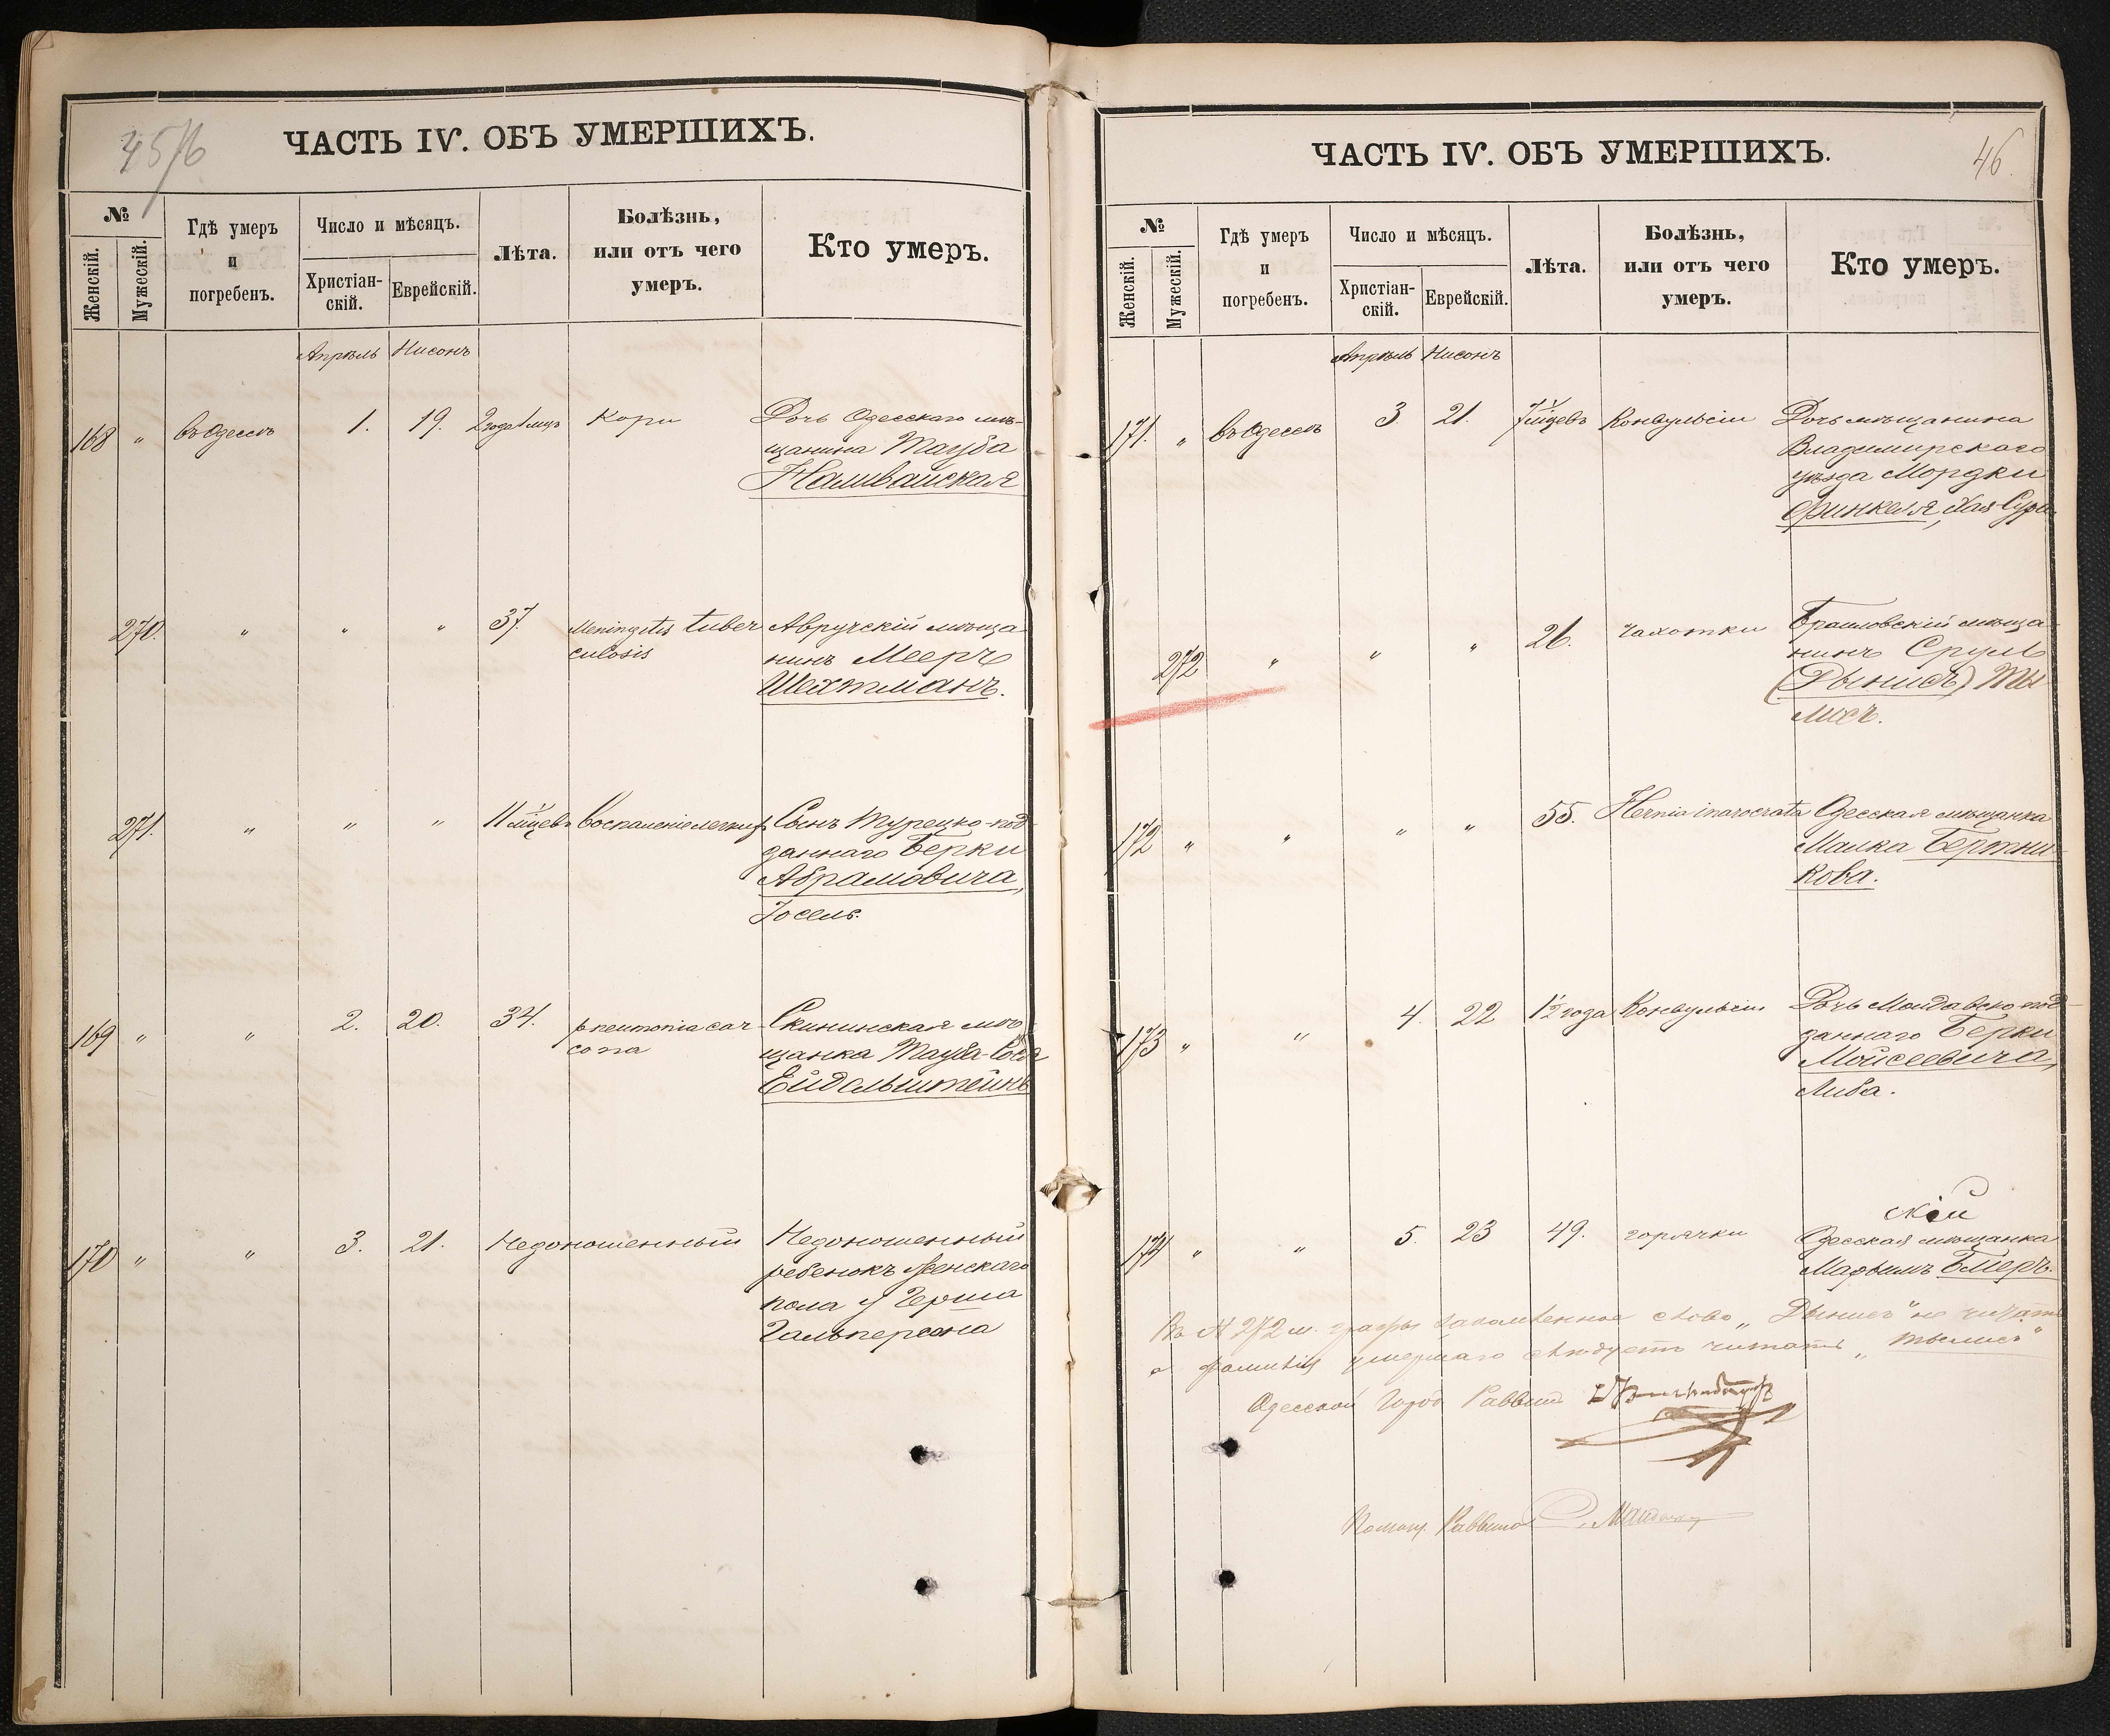 45/6
ЧАСТЬ IV. ОБЪ УМЕРШИХЪ.
№
Женскій.
Мужескій.
Гдѣ умеръ
и
погребенъ.
Число и мѣсяцъ.
Христіан-
скій.
Еврейскій.
Лѣта.
Болѣзнь,
или отъ чего
умеръ.
Кто умеръ.
Апрѣль Нисонъ
168 " въ Одессѣ 1. 19. 2 года 1 мцъ Кори Дочь Одесскаго мѣ-
щанина Тауба
Наливайская
270. " " " 37. Meningitis tuber Авручскій мѣща
culosis нинъ Мееръ
Шехтманъ.
271. " " " 11 мцевъ Воспаленіе легкихъ Сынъ Турецко-под-
даннаго Берки
Абрамовича,
Іосель.
169 " " 2. 20. 34. pneumonia Скининская мѣ-
щанка Тауба-Сося
Ейдельштейнъ
170 " " 3. 21. Недоношенный Недоношенный
ребенокъ женскаго
пола у Герша
Гальперсона
ЧАСТЬ IV. ОБЪ УМЕРШИХЪ.
46.
№
Женскій.
Мужескій.
Гдѣ умеръ
и
погребенъ.
Число и мѣсяцъ.
Христіан-
скій.
Еврейскій.
Лѣта.
Болѣзнь,
или отъ чего
умеръ.
Кто умеръ.
Апрѣль Нисонъ
171. " въ Одессѣ 3 21. 7 мцевъ Конвульсіи Дочь мѣщанина
Владимирскаго
уѣзда Мордки
Финкеля, Хая-Сура
272 " " " 26. чахотки Браиловскій мѣща-
нинъ Сруль
(Дынисъ) Ты
лисъ.
172 " " " " 55. Hernia Одесская мѣщанка
Малка Бертни-
кова.
173 " " 4. 22 1½ года Конвульсіи Дочь Молдавско-под-
даннаго Берки
Мойсеевича,
Либа.
скій
174 " " 5. 23 49. горячки Одесская мѣщанка
Марьимъ Бмеръ.
Въ № 272 м. графы слово „Дынисъ" не читать
а фамилія умершаго слѣдуетъ читать „Тылисъ"
Одесскій Город Раввин
Помощ. Раввина